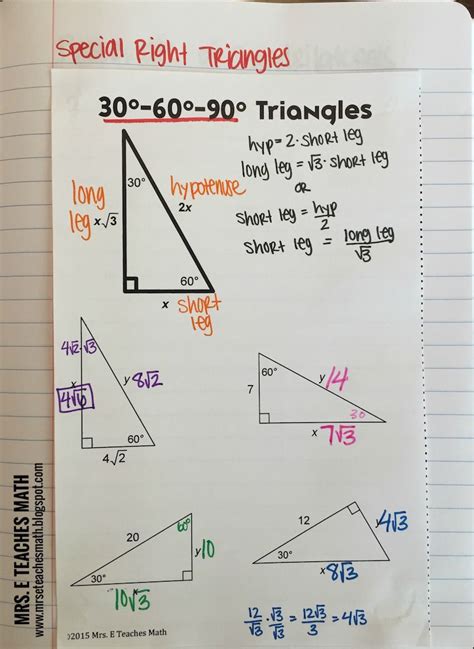 Special Right Triangles
30°-60°-90° Triangles
hyp = 2 · short leg
long leg = √3 · short leg
OR
short leg = hyp/2
short leg = long leg/√3
30°
long leg
x√3
hypotenuse
2x
60°
x
short leg
4√2·√3
x
4√6
y 8√2
60°
4√2
60°
7
y 14
30
x 7√3
20
60°
y 10
30°
10√3
12
y 4√3
30°
x 8√3
12/√3 · √3/√3 = 12√3/3 = 4√3
©2015 Mrs. E Teaches Math
MRS. E TEACHES MATH
www.mrseteachesmath.blogspot.com